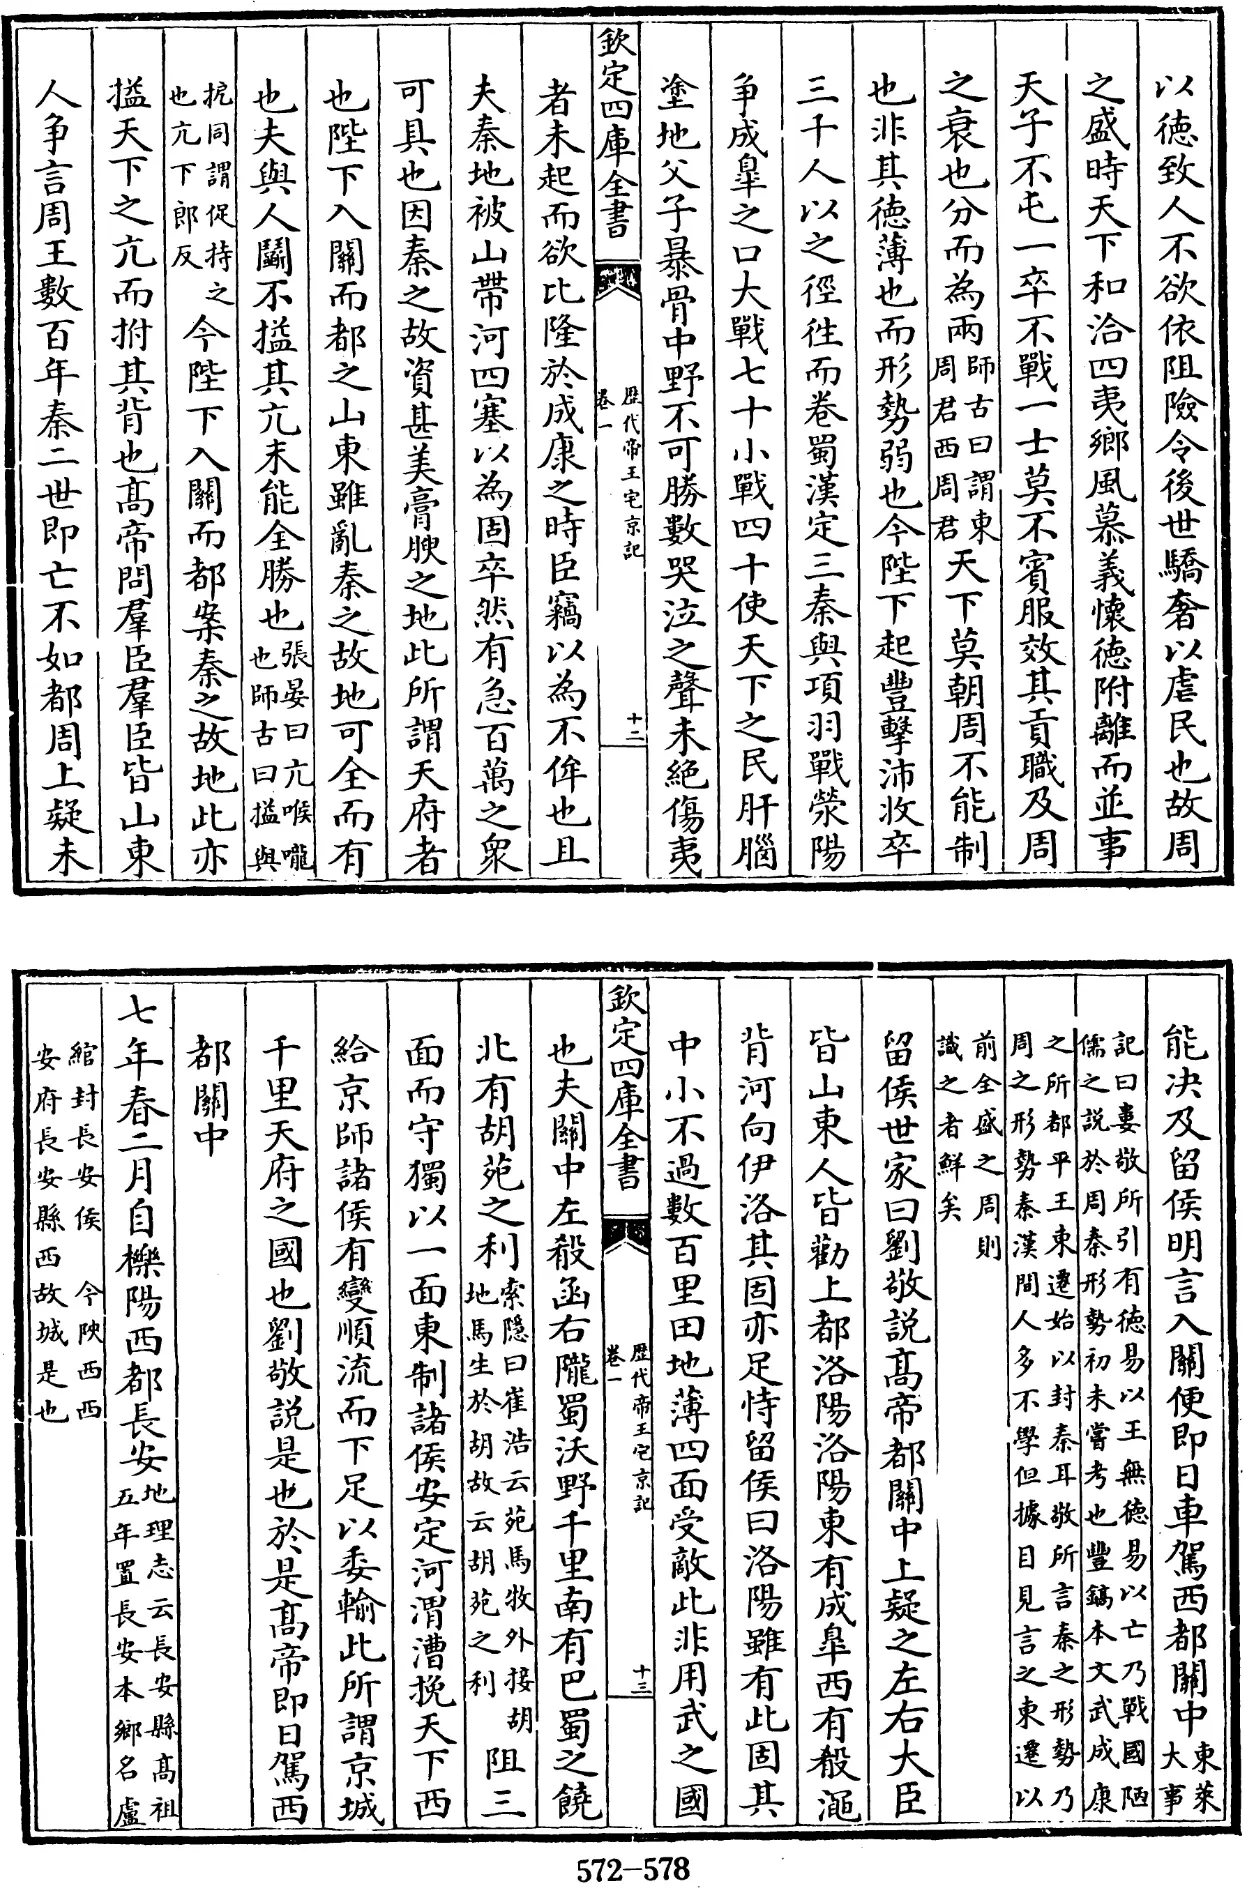 以徳致人不欲依阻險令後世驕奢以虐民也故周
之盛時天下和洽四夷鄉風慕義懷徳附離而並事
天子不屯一卒不戰一士莫不賓服效其貢職及周
之衰也分而為兩師古曰謂東周君西周君天下莫朝周不能制
也非其徳薄也而形勢弱也今陛下起豐擊沛收卒
三千人以之徑徃而卷蜀漢定三秦與項羽戰滎陽
争成臯之口大戰七十小戰四十使天下之民肝腦
塗地父子暴骨中野不可勝數哭泣之聲未絶傷夷
欽定四庫全書
歴代帝王宅京記
卷一
十二
者未起而欲比隆於成康之時臣竊以為不侔也且
夫秦地被山帶河四塞以為固卒然有急百萬之衆
可具也因秦之故資甚美膏腴之地此所謂天府者
也陛下入關而都之山東雖亂秦之故地可全而有
也夫與人鬬不搤其亢未能全勝也張晏曰亢喉嚨也師古曰搤與
扼同謂促持之也亢下郎反今陛下入關而都案秦之故地此亦
搤天下之亢而拊其背也髙帝問羣臣羣臣皆山東
人争言周王數百年秦二世即亡不如都周上疑未
能决及留侯明言入關便即日車駕西都關中東萊大事
記曰婁敬所引有徳易以王無徳易以亡乃戰國陋
儒之説於周秦形勢初未嘗考也豐鎬本文武成康
之所都平王東遷始以封秦耳敬所言秦之形勢乃
周之形勢秦漢間人多不學但據目見言之東遷以
前全盛之周則
識之者鮮矣
留侯世家曰劉敬説髙帝都關中上疑之左右大臣
皆山東人皆勸上都洛陽洛陽東有成臯西有殽澠
背河向伊洛其固亦足恃留侯曰洛陽雖有此固其
中小不過數百里田地薄四面受敵此非用武之國
欽定四庫全書
歴代帝王宅京記
卷一
十三
也夫關中左殽函右隴蜀沃野千里南有巴蜀之饒
北有胡苑之利索隱曰崔浩云苑馬牧外接胡地馬生於胡故云胡苑之利阻三
面而守獨以一面東制諸侯安定河渭漕挽天下西
給京師諸侯有變順流而下足以委輸此所謂京城
千里天府之國也劉敬説是也於是髙帝即日駕西
都關中
七年春二月自櫟陽西都長安地理志云長安縣髙祖五年置長安本鄉名盧
綰封長安侯　今陜西西
安府長安縣西故城是也
572-578